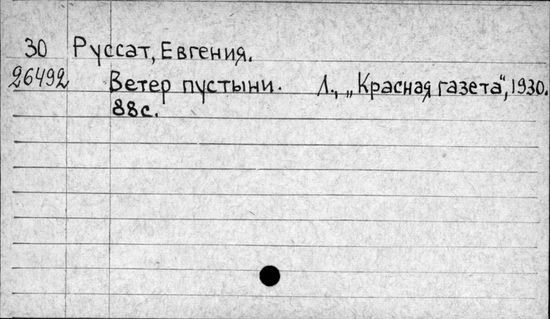 30 Руссат, Евгения.
26492 Ветер пустыни. Л., „Красная газета", 1930.
88с.